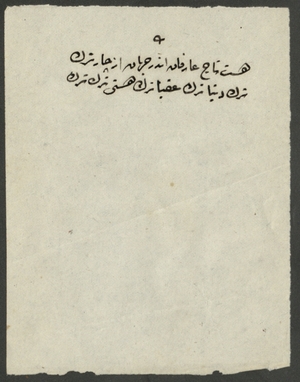 ۹
هست تاج عارفان اندر جهان از چار ترك
ترك دنیا ترك عقبا ترك هستی ترك ترك